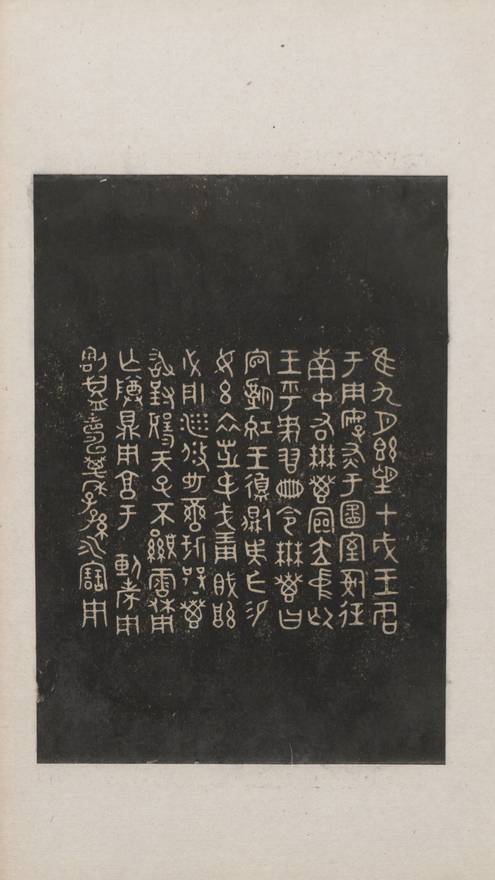 隹九月既望甲戌王各
于周廟于圖室司徒
南中右無叀內門立中廷
王乎史翏冊令無叀曰
官𤔲王側虎臣易
女玄衣黹屯戈琱
必彤沙攸勒䜌旂無叀
敢對揚天子不顯魯休用
乍尊鼎用享于考用
割眉壽萬年子孫永寶用